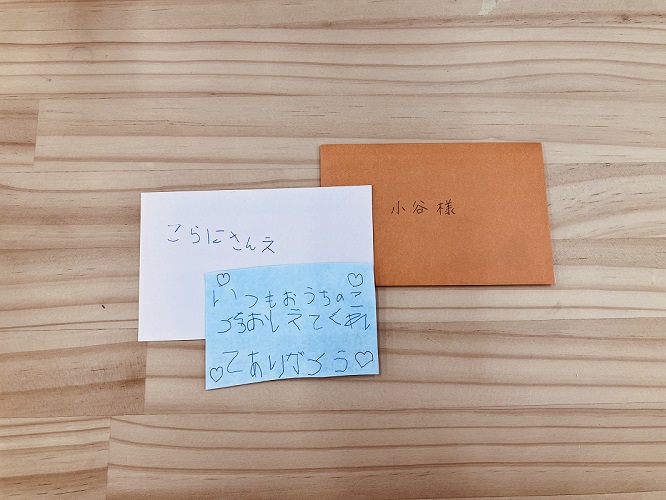 小谷様
こらにさんえ
いつもおうちのこ
とおしえてくれ
てありがとう